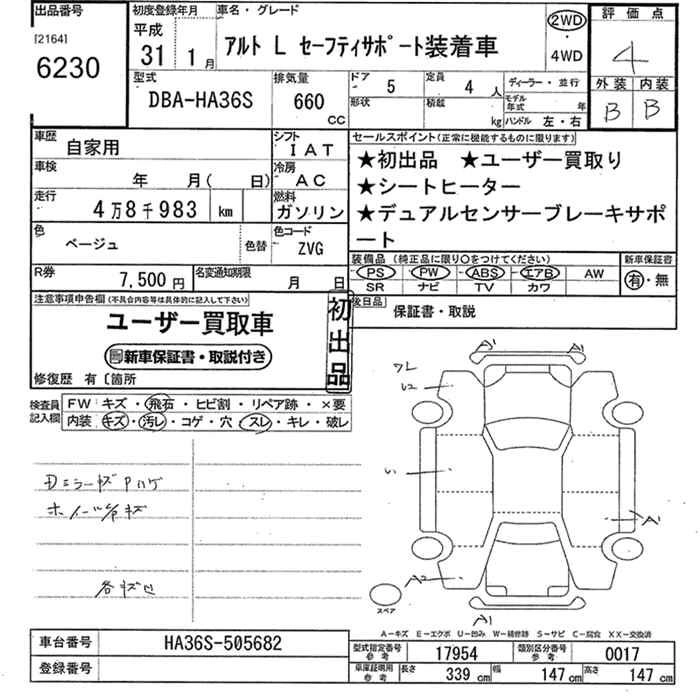 出品番号
[2164]
6230
初度登録年月
平成
31 1 月
車名・グレード
アルト L セーフティサポート装着車
2WD
・
4WD
評価点
4
外装 内装
B B
型式
DBA-HA36S
排気量
660
CC
ドア 5
定員 4 人
形状
積載 kg
ディーラー・並行
モデル年式 年
ハンドル 左・右
車歴
自家用
シフト
I A T
車検
年 月( 日)
冷房
A C
走行
4万8千983 km
燃料
ガソリン
色
ベージュ
色替
色コード
ZVG
R券
7,500円
名変通知期限
月 日
セールスポイント(正常に機能するものに限ります)
★初出品 ★ユーザー買取り
★シートヒーター
★デュアルセンサーブレーキサポ
ート
装備品 (純正品に限り○をつけてください)
PS PW ABS エアB AW
SR ナビ TV カワ
新車保証書
有・無
後日品
保証書・取説
注意事項申告欄(不具合内容等は具体的に記入して下さい)
ユーザー買取車
新車保証書・取説付き
初出品
修復歴 有〔箇所
検査員
記入欄
FW キズ・飛石・ヒビ割・リペア跡・×要
内装 キズ・汚レ・コゲ・穴・スレ・キレ・破レ
Dミラーキズ Pハゲ
ホイール キズ
各キズ凹
A1 A1
ワレ
A1
A2
A1
スペア
A−キズ E−エクボ U−凹み W−補修跡 S−サビ C−腐食 XX−交換済
車台番号
HA36S-505682
登録番号
型式指定番号
参考
17954
類別区分番号
参考
0017
車庫証明用
参考
長さ 339 cm
幅 147 cm
高さ 147 cm